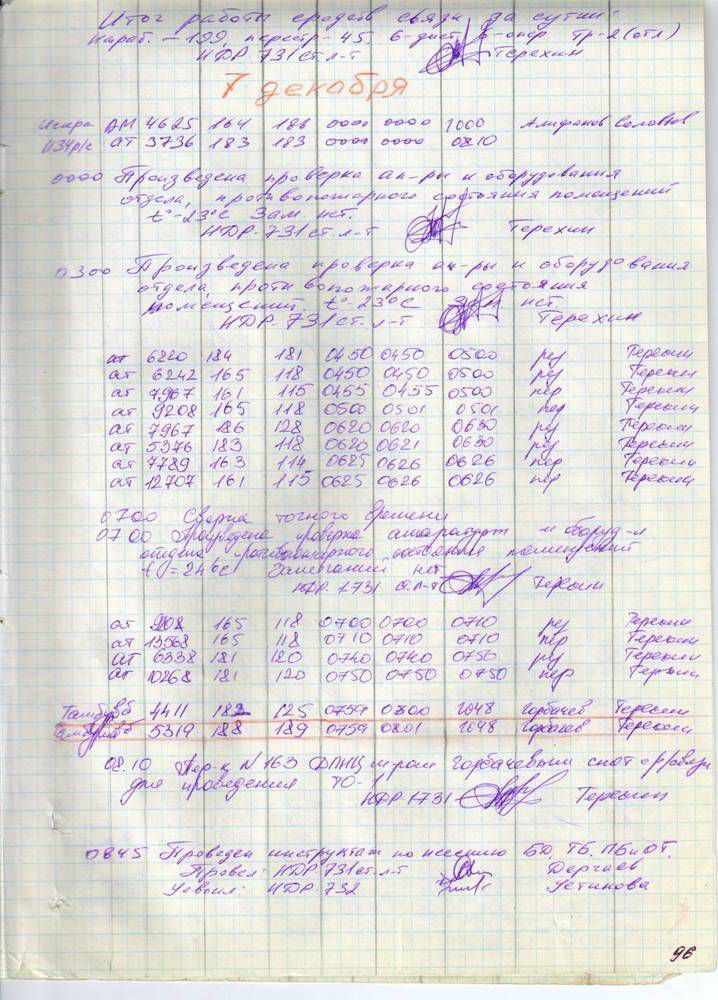 Итог работы средств связи за сутки:
Нараб. – 199, перестр – 45. 6-дист. опер тр-2 (отл)
НДР 731 ст. л-т Терехин
7 декабря
Искра АМ 4625 164 186 0000 0000 1000 Алифанов Соловьов
АТ 3736 183 183 0000 0000 0810
0000 Произведена проверка ап-ры и оборудования
отдела, противопожарного состояния помещений
t°-23°С Зам. нет.
НДР-731 ст. л-т Терехин
0300 Произведена проверка ап-ры и оборудования
отдела, противопожарного состояния
помещений. t°-23°С Зам нет.
НДР-731 ст. л-т Терехин
ат 6220 184 181 0450 0450 0500 рез Терехин
ат 6242 165 118 0450 0450 0500 рез Терехин
ат 7967 161 115 0455 0455 0500 пер Терехин
ат 9208 165 118 0500 0501 0501 пер Терехин
ат 7967 186 128 0620 0620 0630 рез Терехин
ат 5376 183 118 0620 0621 0630 рез Терехин
ат 7789 163 114 0625 0626 0626 пер Терехин
ат 12707 161 115 0625 0626 0626 пер Терехин
0700 Сверка точного времени
0700 Произведена проверка аппаратуры и оборуд-я
отдела противопожарного состояния помещений
t°=24°С Замечаний нет
НДР-1731 ст. л-т Терехин
ат 9208 165 118 0700 0700 0710 рез Терехин
ат 13568 165 118 0710 0710 0710 пер Терехин
ат 6338 181 120 0740 0740 0750 рез Терехин
ат 10268 181 120 0750 0750 0750 пер Терехин
4411 182 125 0759 0800 1048 Горбачев Терехин
5319 188 189 0759 0801 1048 Горбачев Терехин
08.10 N 163 Горбачевым снят с р/связи
для проведения ТО-1
НДР-1731 Терехин
0845 Проведен инструктаж по несению БД, ТБ, ПБ и ОТ.
Провел: НДР 731 ст. л-т Дергаев
Усвоил: НДР-732 Устинова
96